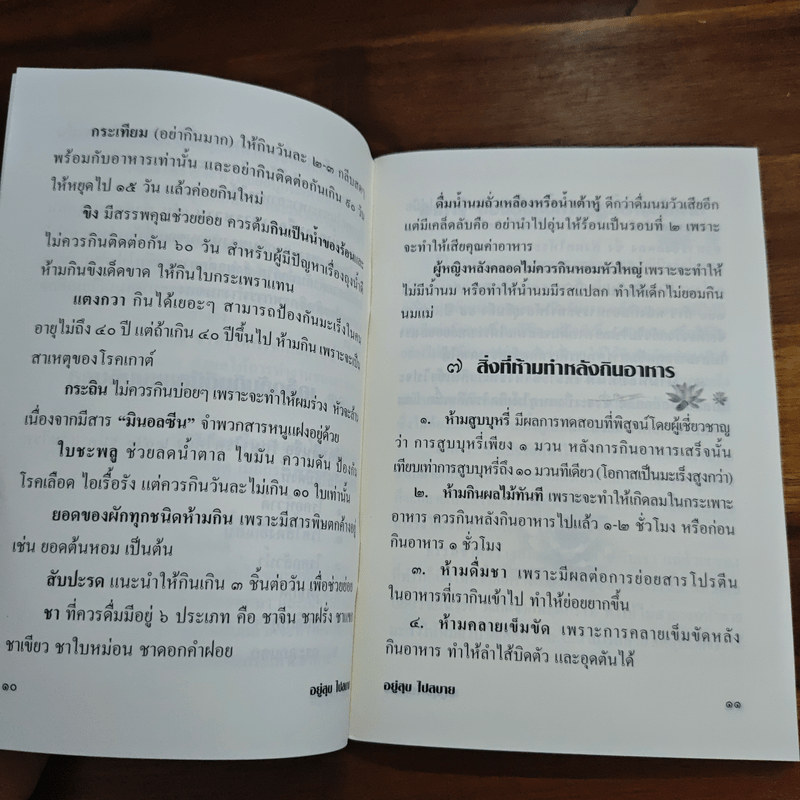 กระเทียม (อย่ากินมาก) ให้กินวันละ ๒-๓ กลีบ
พร้อมกับอาหารเท่านั้น และอย่ากินติดต่อกันเกิน วัน
ให้หยุดไป ๑๕ วัน แล้วค่อยกินใหม่
ขิง มีสรรพคุณช่วยย่อย ควรต้มกินเป็นน้ำของร้อน
ไม่ควรกินติดต่อกัน ๖๐ วัน สำหรับผู้มีปัญหาเรื่องถุงน้ำดี
ห้ามกินขิงเด็ดขาด ให้กินใบกระเพราแทน
แตงกวา กินได้เยอะๆ สามารถป้องกันมะเร็งในคน
อายุไม่ถึง ๔๐ ปี แต่ถ้าเกิน ๔๐ ปีขึ้นไป ห้ามกิน เพราะจะเป็น
สาเหตุของโรคเกาต์
กระถิน ไม่ควรกินบ่อยๆ เพราะจะทำให้ผมร่วง หัวจะล้าน
เนื่องจากมีสาร “มินอลซีน” จำพวกสารหนูแฝงอยู่ด้วย
ใบชะพลู ช่วยลดน้ำตาล ไขมัน ความดัน ป้องกัน
โรคเลือด ไอเรื้อรัง แต่ควรกินวันละไม่เกิน ๑๐ ใบเท่านั้น
ยอดของผักทุกชนิดห้ามกิน เพราะมีสารพิษตกค้างอยู่
เช่น ยอดต้นหอม เป็นต้น
สับปะรด แนะนำให้กินเกิน ๓ ชิ้นต่อวัน เพื่อช่วยย่อย
ชา ที่ควรดื่มมีอยู่ ๖ ประเภท คือ ชาจีน ชาฝรั่ง
ชาเขียว ชาใบหม่อน ชาดอกคำฝอย
๑๐
อยู่สุข ไปสบาย
ดื่มน้ำนมถั่วเหลืองหรือน้ำเต้าหู้ ดีกว่าดื่มนมวัวเสียอีก
แต่มีเคล็ดลับคือ อย่านำไปอุ่นให้ร้อนเป็นรอบที่ ๒ เพราะ
จะทำให้เสียคุณค่าอาหาร
ผู้หญิงหลังคลอดไม่ควรกินหอมหัวใหญ่ เพราะจะทำให้
ไม่มีน้ำนม หรือทำให้น้ำนมมีรสแปลก ทำให้เด็กไม่ยอมกิน
นมแม่
๗ สิ่งที่ห้ามทำหลังกินอาหาร
๑. ห้ามสูบบุหรี่ มีผลการทดสอบที่พิสูจน์โดยผู้เชี่ยวชาญ
ว่า การสูบบุหรี่เพียง ๑ มวน หลังการกินอาหารเสร็จนั้น
เทียบเท่าการสูบบุหรี่ถึง ๑๐ มวนทีเดียว (โอกาสเป็นมะเร็งสูงกว่า)
๒. ห้ามกินผลไม้ทันที เพราะจะทำให้เกิดลมในกระเพาะ
อาหาร ควรกินหลังกินอาหารไปแล้ว ๑-๒ ชั่วโมง หรือก่อน
กินอาหาร ๑ ชั่วโมง
๓. ห้ามดื่มชา เพราะมีผลต่อการย่อยสารโปรตีน
ในอาหารที่เรากินเข้าไป ทำให้ย่อยยากขึ้น
๔. ห้ามคลายเข็มขัด เพราะการคลายเข็มขัดหลัง
กินอาหาร ทำให้ลำไส้บิดตัว และอุดตันได้
อยู่สุข ไปสบาย
๑๑